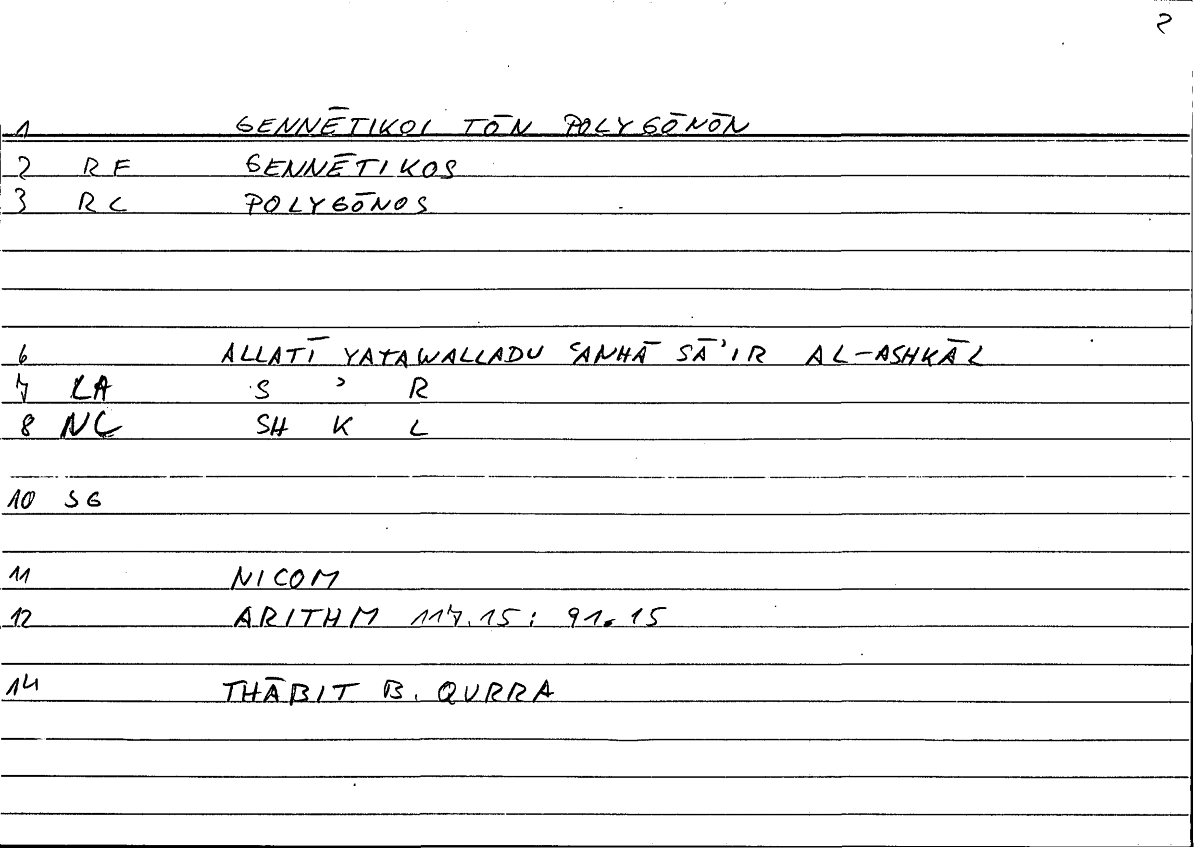 2
1 GENNĒTIKOI TŌN POLYGŌNŌN
2 RF GENNĒTIKOS
3 RC POLYGŌNOS
6 ALLATĪ YATAWALLADU ʿANHĀ SĀʾIR AL-ASHKĀL
7 LA S ʾ R
8 NC SH K L
10 SG
11 NICOM
12 ARITHM 117.15: 91.15
14 THĀBIT B. QURRA